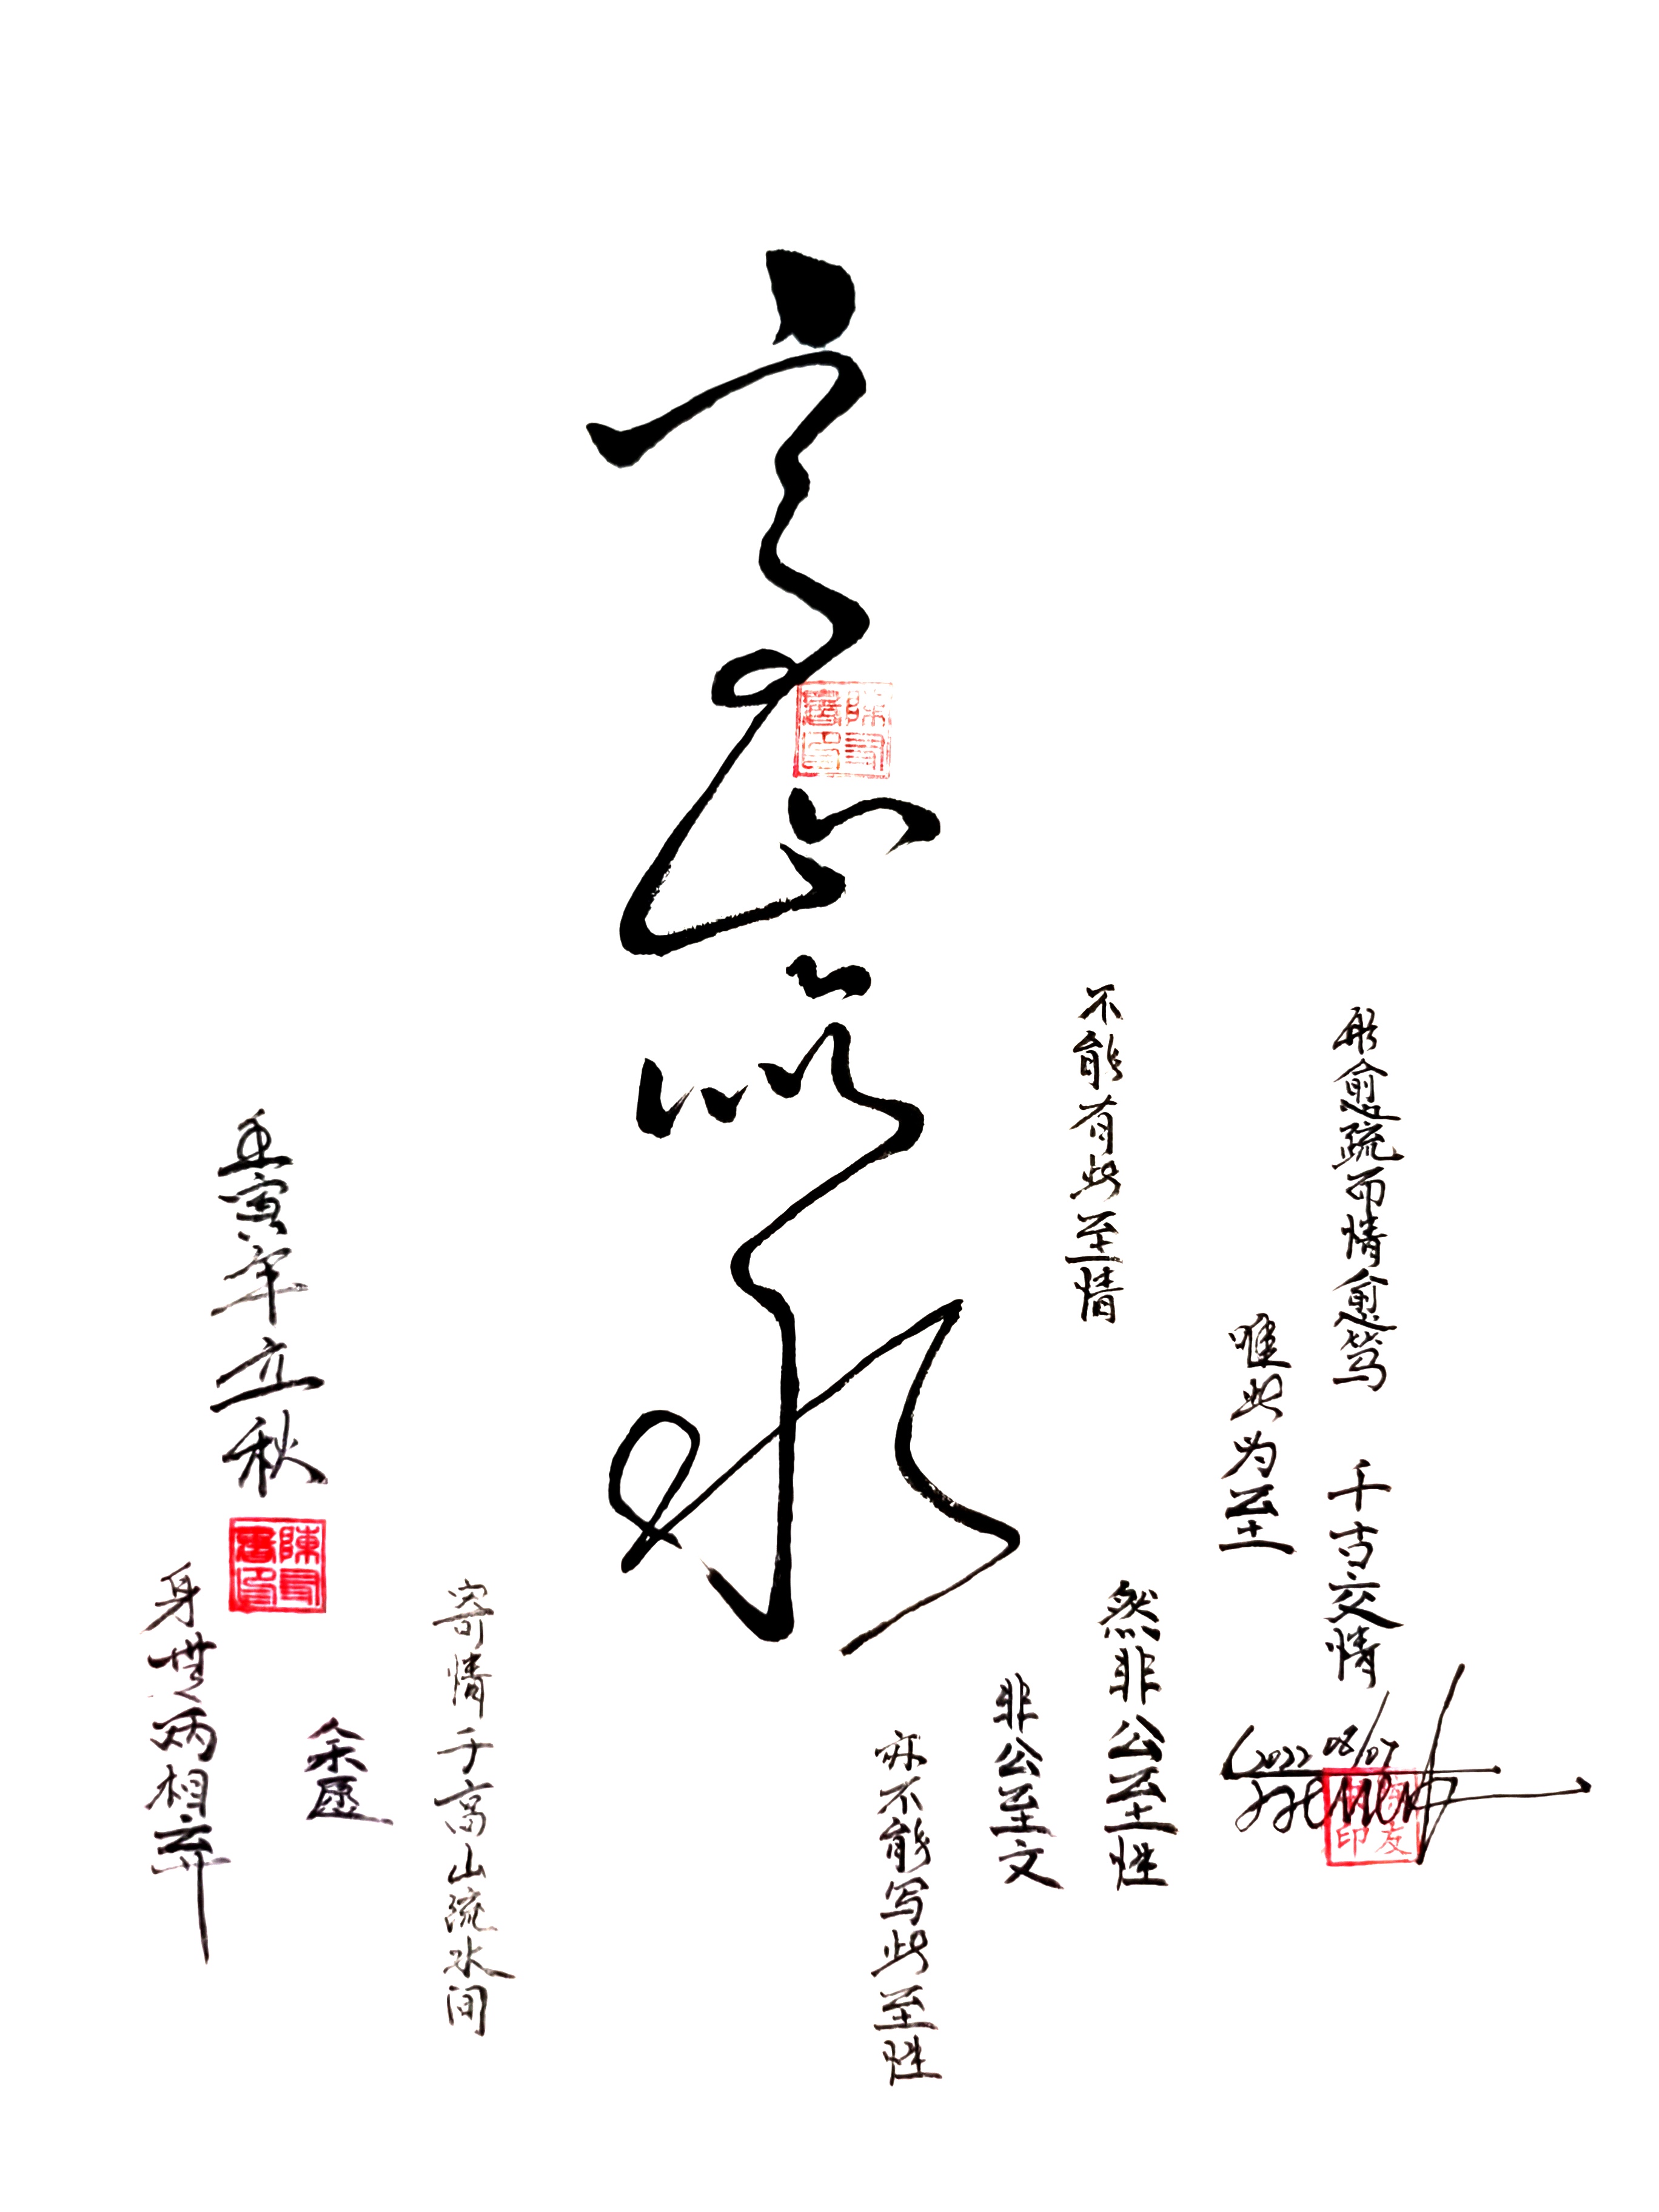 高山流水
形愈疏而情愈笃
千古交情
唯此为至
然非公至性
不能有此至情
非公至文
亦不能写此至性
寄情于高山流水间
余愿
身世两相弃
壬寅年立秋
陳友書印
2022 08/07